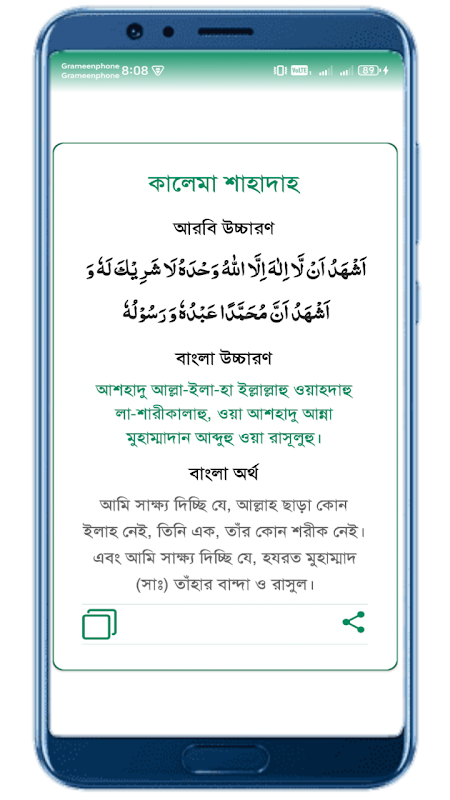 Grameenphone
Grameenphone 8:08 VoLTE 89
কালেমা শাহাদাহ
আরবি উচ্চারণ
اَشْهَدُ اَنْ لَّا اِلٰهَ اِلَّا اللهُ وَحْدَهُ لَا شَرِيْكَ لَهٗ وَ
اَشْهَدُ اَنَّ مُحَمَّدًا عَبْدُهٗ وَ رَسُوْلُهٗ
বাংলা উচ্চারণ
আশহাদু আল্লা-ইলা-হা ইল্লাল্লাহু ওয়াহদাহু
লা-শারীকালাহু, ওয়া আশহাদু আন্না
মুহাম্মাদান আব্দুহু ওয়া রাসূলুহু।
বাংলা অর্থ
আমি সাক্ষ্য দিচ্ছি যে, আল্লাহ ছাড়া কোন
ইলাহ নেই, তিনি এক, তাঁর কোন শরীক নেই।
এবং আমি সাক্ষ্য দিচ্ছি যে, হযরত মুহাম্মাদ
(সাঃ) তাঁহার বান্দা ও রাসুল।